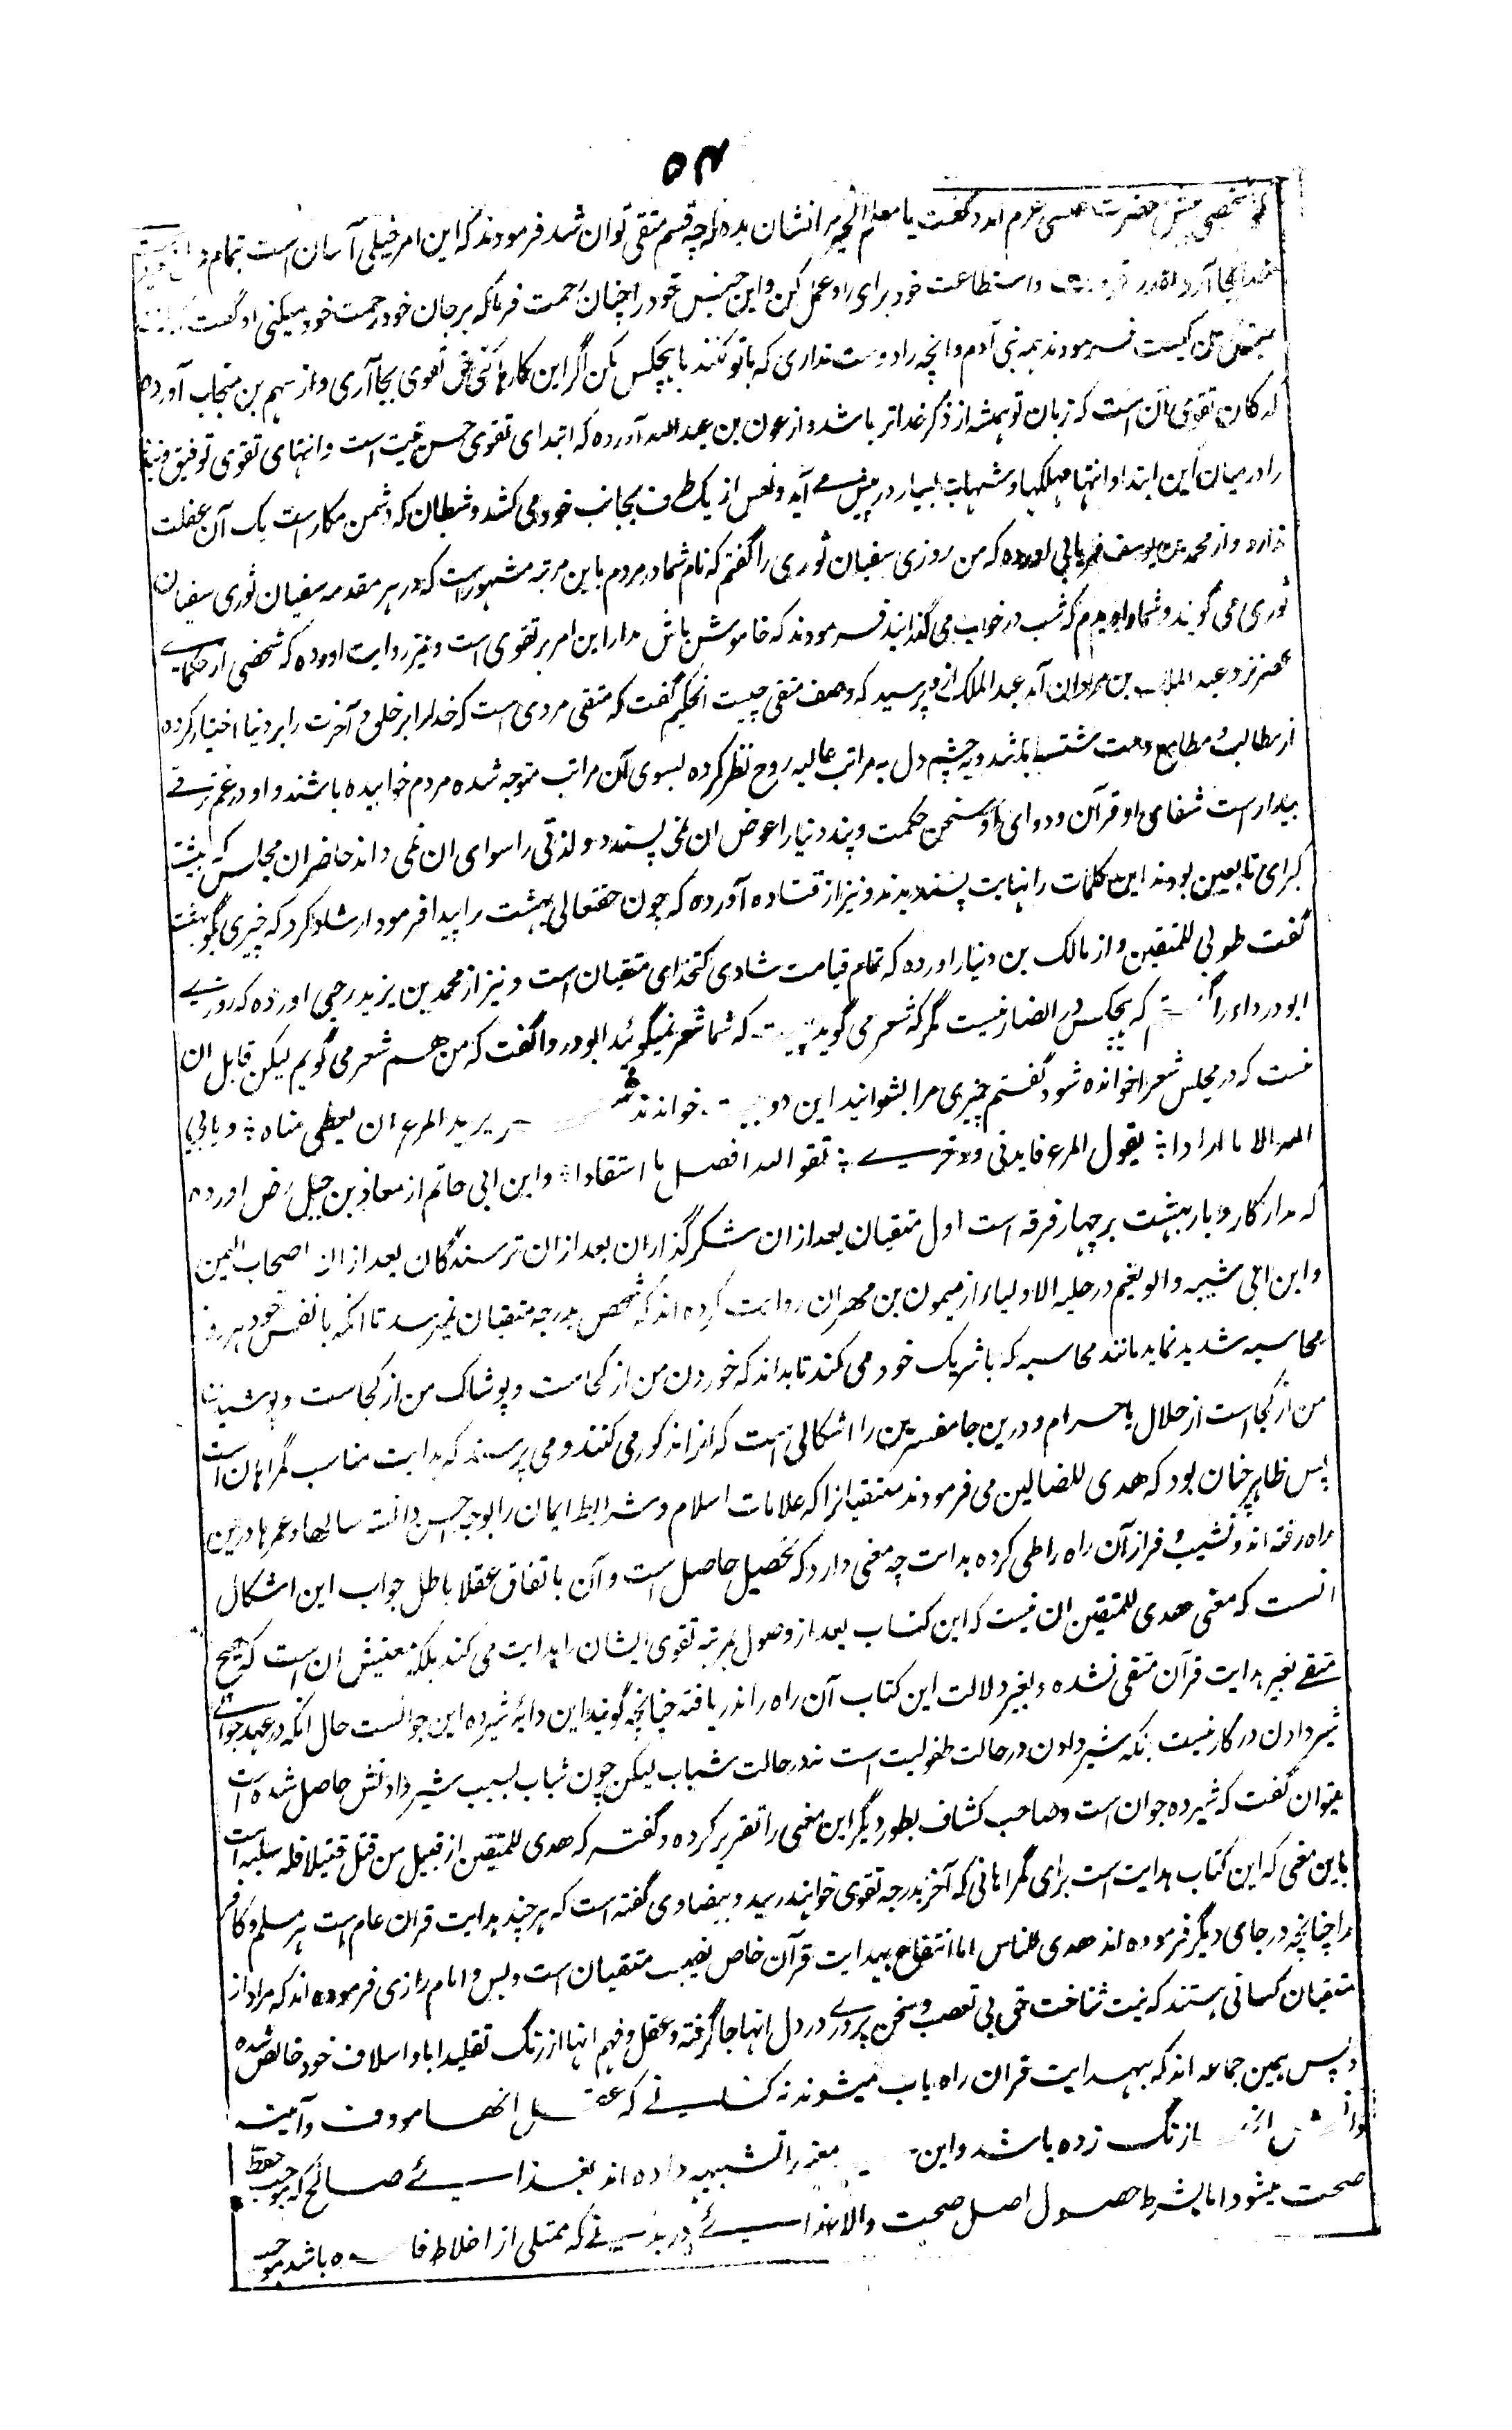 ۵۴
که شخصی پیش حضرت عیسی عرم آمد و گفت یا معلم الخیر مرا نشان بده که چه قسم متقی توان شد فرمودند که این امر خیلی آسان است تمام
بجا آر و بقدر قوت و استطاعت خود برای او عمل کن و ابن جنس خود را چنان رحمت فرما که بر جان خود رحمت خود میکنی او گفت که
جنس من کیست فرمودند همه بنی آدم و انچه را دوست نداری که با تو کنند با هیچکس مکن اگر این کارها کنی حق تقوی بجا آری و از سهم بن منجاب آورده
که کان تقوی آن است که زبان تو همیشه از ذکر خدا تر باشد و از عون بن عبد الله آورده که ابتدای تقوی حسن نیت است و انتهای تقوی توفیق و بنده
را درمیان این ابتدا و انتها مهلکها و شبهات بسیار در پیش می آید و نفس از یک طرف بجانب خود می کشد و شیطان که دشمن مکار است یک آن غفلت
ندارد و از محمد بن یوسف فریابی آورده که من روزی سفیان ثوری را گفتم که نام شما در مردم باین مرتبه مشهور است که در هر مقدمه سفیان ثوری سفیان
ثوری می گویند و شما را دیدم که شب در خواب می گذرانید فرمودند که خاموش باش مدار این امر بر تقوی است و نیز روایت آورده که شخصی از حکمای
عصر نزد عبد الملک بن مروان آمد عبد الملک ازو پرسید که وصف متقی چیست آنحکیم گفت که متقی مردی است که خدا را بر خلق و آخرت را بر دنیا اختیار کرده
از مطالب و مطامع دست شسته باشد و به چشم دل به مراتب عالیه روح نظر کرده بسوی آن مراتب متوجه شده مردم خوابیده باشند و او در غم ترقی
بیدار است شفای او قرآن و دوای او سخن حکمت و پند دنیا را عوض ان نمی پسندد و لذتی را سوای ان نمی داند حاضران مجلس که
کبرای تابعین بودند این کلمات را نهایت پسندیدند و نیز از قتاده آورده که چون حقتعالی بهشت را پیدا فرمود ارشاد کرد که چیزی بگو بهشت
گفت طوبی للمتقین و از مالک بن دینار آورده که تمام قیامت شادی کتخدای متقیان است و نیز از محمد بن یزید رحبی آورده که روزی
ابو درداء را گفتم که هیچکس در انصار نیست مگر که شعر می گوید چیست که شما شعر نمیگوئید ابو دردا گفت که من هم شعر می گویم لیکن قابل ان
نیست که در مجلس شعرا خوانده شود گفتم چیزی مرا بشنوانید این دو بیت خواندند شعر یرید المرء ان یعطی مناه ؞ ویابی
الله الا ما ارادا ؞ یقول المرء فایدتی وذخری ؞ تقو الله افضل ما استفادا ؞ و ابن ابی حاتم از معاذ بن جبل رض آورده
که مدار کار و بار بهشت بر چهار فرقه است اول متقیان بعد ازان شکر گذاران بعد ازان ترسندگان بعد ازان اصحاب الیمین
و ابن ابی شیبه و ابو نعیم در حلیه الاولیاء از میمون بن مهران روایت کرده اند که شخص بدرجه متقیان نمیرسد تا آنکه با نفس خود هر روز
محاسبه شدید نماید مانند محاسبه که با شریک خود می کند تا بداند که خوردن من از کجاست و پوشاک من از کجاست و نوشیدن
من از کجا است از حلال یا حرام و درین جا مفسرین را اشکالی است که آنرا مذکور می کنند و می پرسند که هدایت مناسب گمراهان است
پس ظاهر چنان بود که هدی للضالین می فرمودند متقیان را که علامات اسلام و شرایط ایمان را بوجه احسن دانسته سالها و عمرها درین
راه رفته اند و نشیب و فراز آن راه را طی کرده هدایت چه معنی دارد که تحصیل حاصل است و آن باتفاق عقلا باطل جواب این اشکال
انست که معنی هدی للمتقین ان نیست که این کتاب بعد از وصول بمرتبه تقوی ایشان را هدایت می کند بلکه معنیش ان است که هیچ
متقی بغیر هدایت قرآن متقی نشده و بغیر دلالت این کتاب آن راه را ندر یافته چنانچه گویند این دایه شیرده این جوانست حال آنکه در عهد جوانی
شیر دادن در کار نیست بلکه شیر دادن در حالت طفولیت است نه در حالت شباب لیکن چون شباب بسبب شیر دادنش حاصل شده است
میتوان گفت که شیرده جوان است و صاحب کشاف بطور دیگر این معنی را تقریر کرده و گفته که هدی للمتقین از قبیل من قتل قتیلا فله سلبه است
باین معنی که این کتاب هدایت است برای گمراهانی که آخر بدرجه تقوی خواهند رسید و بیضاوی گفته است که هر چند هدایت قرآن عام است هر مسلم و کافر
را چنانچه در جای دیگر فرموده اند هدی للناس اما انتفاع بهدایت قرآن خاص نصیب متقیان است و بس و امام رازی فرموده اند که مراد از
متقیان کسانی هستند که نیت شناخت حق بی تعصب و سخن پروری در دل انها جا گرفته و عقل و فهم انها از زنگ تقلید ابا و اسلاف خود خالص شده
و پس همین جماعه اند که بهدایت قرآن راه یاب میشوند نه کسانی که عقل انها موروث و آئینه
زنگ زده باشد و این معنی را تشبیه داده اند بغذای صالح که موجب حفظ
صحت میشود اما بشرط حصول اصل صحت والا غذای در بدنی که ممتلی از اخلاط فاسده باشد موجب